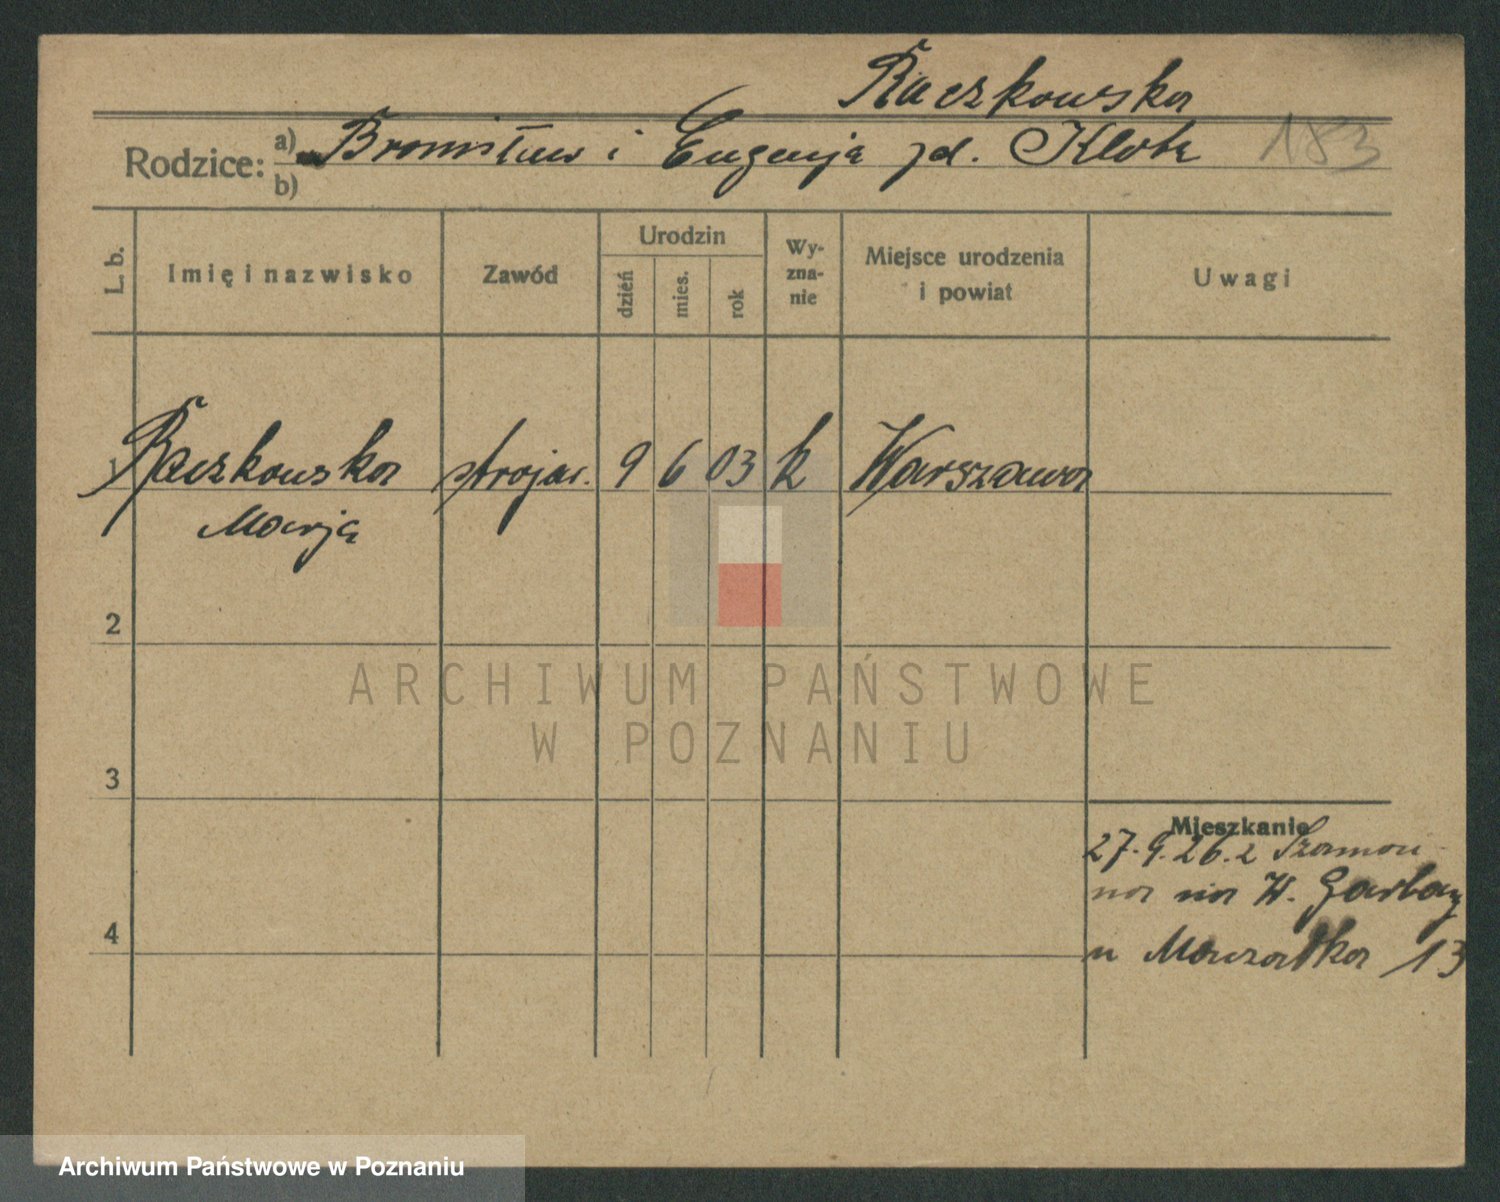 Raczkowska
Rodzice: a) Bronisław i Eugenja zd. Klotz 183
b)
L. b. Imię i nazwisko Zawód Urodzin dzień mies. rok Wy-zna-nie Miejsce urodzenia i powiat Uwagi
1 Raczkowska strojac. 9 6 03 k Warszawa
Marja
2
ARCHIWUM PAŃSTWOWE
W POZNANIU
3
Mieszkanie
27.9.26. z
na W. Garbary
4
u 13
Archiwum Państwowe w Poznaniu